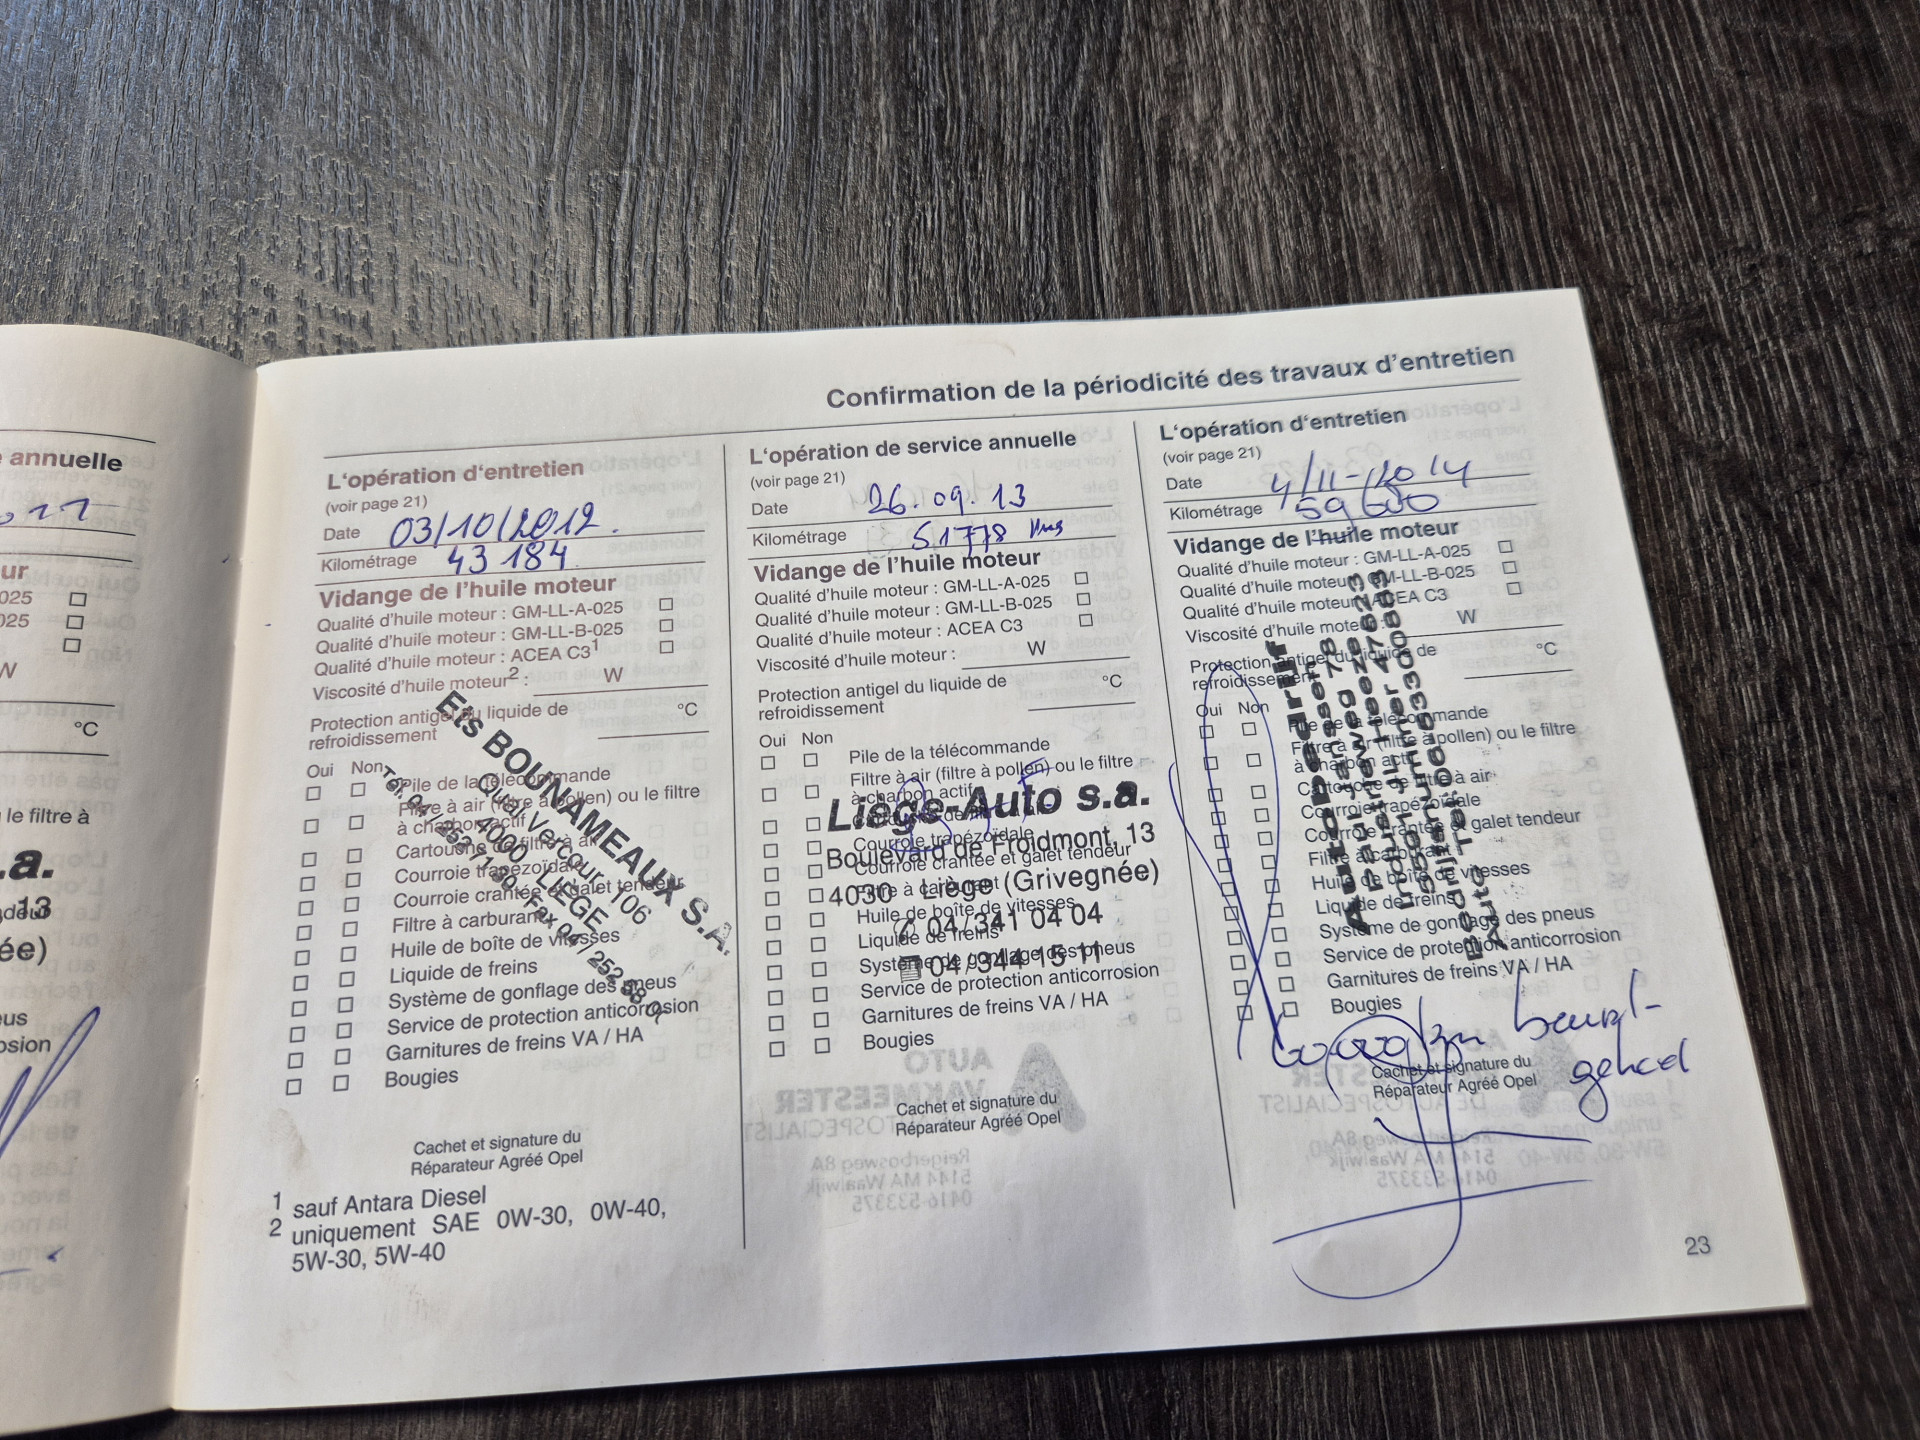 annuelle
ur
025
025
W
°C
le filtre à
.a.
13
ée)
Confirmation de la périodicité des travaux d'entretien
L'opération d'entretien
(voir page 21)
Date 03/10/2012.
Kilométrage 43 184
Vidange de l'huile moteur
Qualité d'huile moteur : GM-LL-A-025
Qualité d'huile moteur : GM-LL-B-025
Qualité d'huile moteur : ACEA C3¹
Viscosité d'huile moteur² : W
Protection antigel du liquide de °C
refroidissement
Oui Non
Pile de la télécommande
Filtre à air (filtre à pollen) ou le filtre
à charbon actif
Cartouche de filtre à air
Courroie trapézoïdale
Courroie crantée et galet tendeur
Filtre à carburant
Huile de boîte de vitesses
Liquide de freins
Système de gonflage des pneus
Service de protection anticorrosion
Garnitures de freins VA / HA
Bougies
Ets BOUNAMEAUX S.A.
Quai Vercour, 106
4000 LIÈGE
Cachet et signature du
Réparateur Agréé Opel
1 sauf Antara Diesel
2 uniquement SAE 0W-30, 0W-40,
5W-30, 5W-40
L'opération de service annuelle
(voir page 21)
Date 26.09.13
Kilométrage 51778 kms
Vidange de l'huile moteur
Qualité d'huile moteur : GM-LL-A-025
Qualité d'huile moteur : GM-LL-B-025
Qualité d'huile moteur : ACEA C3
Viscosité d'huile moteur : W
Protection antigel du liquide de °C
refroidissement
Oui Non
Pile de la télécommande
Filtre à air (filtre à pollen) ou le filtre
à charbon actif
Courroie trapézoïdale
Courroie crantée et galet tendeur
Filtre à carburant
Huile de boîte de vitesses
Liquide de freins
Système de gonflage des pneus
Service de protection anticorrosion
Garnitures de freins VA / HA
Bougies
Liège-Auto s.a.
Boulevard de Froidmont, 13
4030 Liège (Grivegnée)
04/341 04 04
04/344 15 11
Cachet et signature du
Réparateur Agréé Opel
L'opération d'entretien
(voir page 21)
Date 4/11-2014
Kilométrage 59600
Vidange de l'huile moteur
Qualité d'huile moteur : GM-LL-A-025
Qualité d'huile moteur : GM-LL-B-025
Qualité d'huile moteur : ACEA C3
Viscosité d'huile moteur : W
Protection antigel du liquide de °C
refroidissement
Oui Non
Pile de la télécommande
Filtre à air (filtre à pollen) ou le filtre
à charbon actif
Cartouche de filtre à air
Courroie trapézoïdale
Courroie crantée et galet tendeur
Filtre à carburant
Huile de boîte de vitesses
Liquide de freins
Système de gonflage des pneus
Service de protection anticorrosion
Garnitures de freins VA / HA
Bougies
Autobedrijf
Cachet et signature du
Réparateur Agréé Opel
23